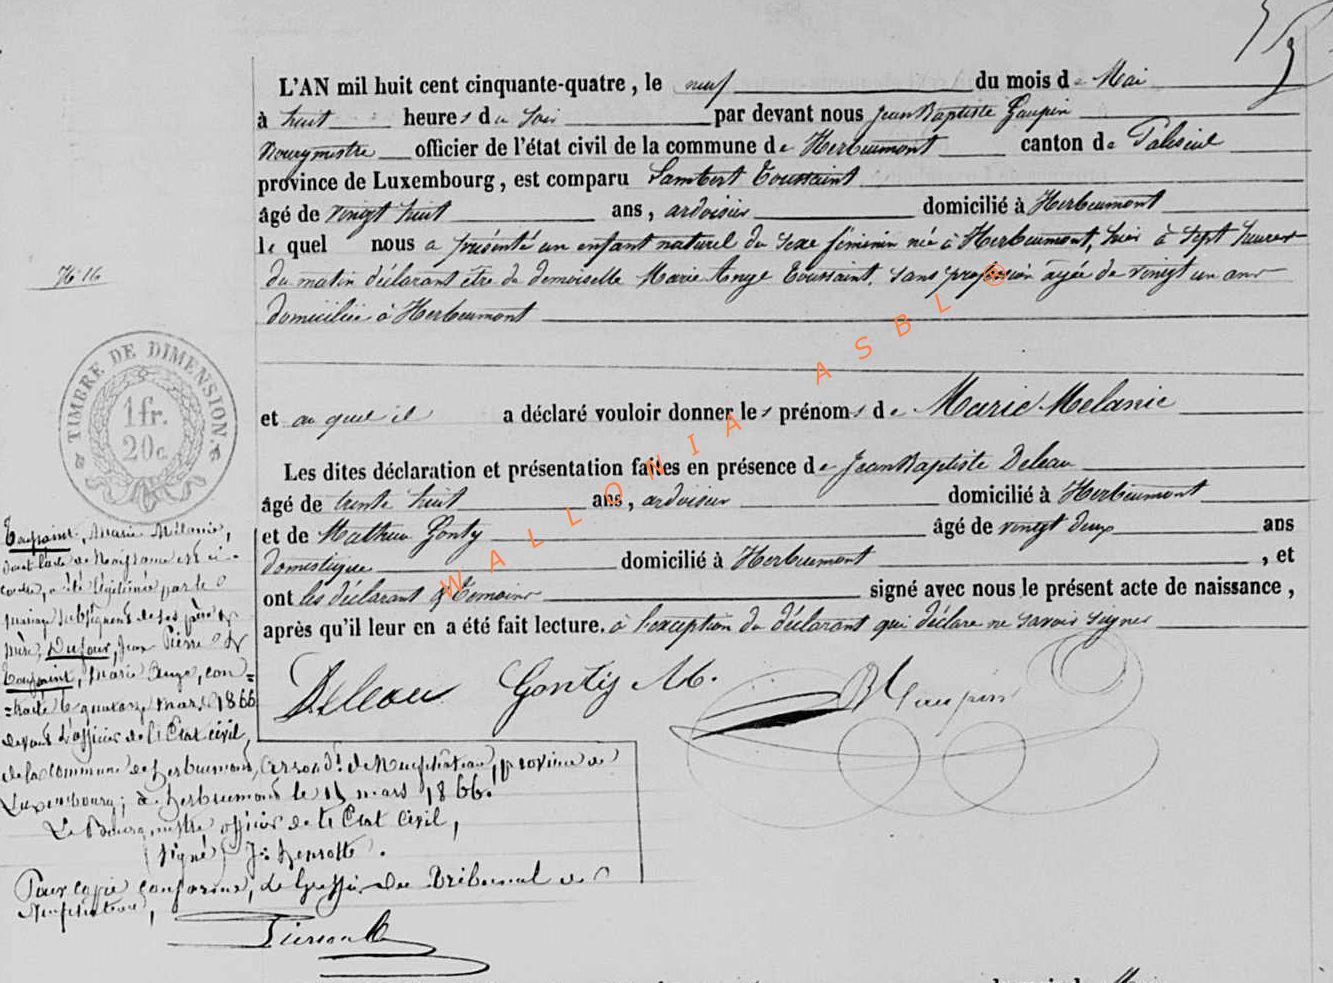 L'AN mil huit cent cinquante-quatre, le neuf du mois de Mai
à huit heures du Soir par devant nous Jean Baptiste Gaupin
Bourgmestre officier de l'état civil de la commune de Herbeumont canton de Paliseul
province de Luxembourg, est comparu Lambert Toussaint
âgé de vingt huit ans, ardoisier domicilié à Herbeumont
le quel nous a présenté un enfant naturel du sexe féminin né à Herbeumont, hier à sept heures
du matin déclarant être de demoiselle Marie Ange Toussaint, sans profession âgée de vingt un ans
domiciliée à Herbeumont
et au quel il a déclaré vouloir donner les prénoms de Marie Melanie
Les dites déclaration et présentation faites en présence de Jean Baptiste Deleau
âgé de trente huit ans, ardoisier domicilié à Herbeumont
et de Mathieu Gonty âgé de vingt deux ans
domestique domicilié à Herbeumont, et
ont les déclarant & Temoins signé avec nous le présent acte de naissance,
après qu'il leur en a été fait lecture, à l'exception du déclarant qui déclare ne savoir signer
Deleau Gontis M. Gaupin
N° 16
TIMBRE DE DIMENSION
1fr.
20c.
Toussaint, Marie Mélanie,
dont l'acte de Naissance est ci-
contre, a été légitimée par le
mariage subséquent de ses père &
mère, Dufour, Jean Pierre &
Toussaint, Marie Ange, con=
=tracté le quatorze mars 1866
devant l'officier de l'Etat civil
de la commune de Herbeumont, Arrond.t de Neufchâteau, province de
Luxembourg; à Herbeumont le 15 mars 1866.
Le Bourgmestre officier de l'Etat Civil,
(signé) J:
Pour copie conforme, le Greffier du Tribunal de
Neufchâteau,
WALLONIA ASBL ®